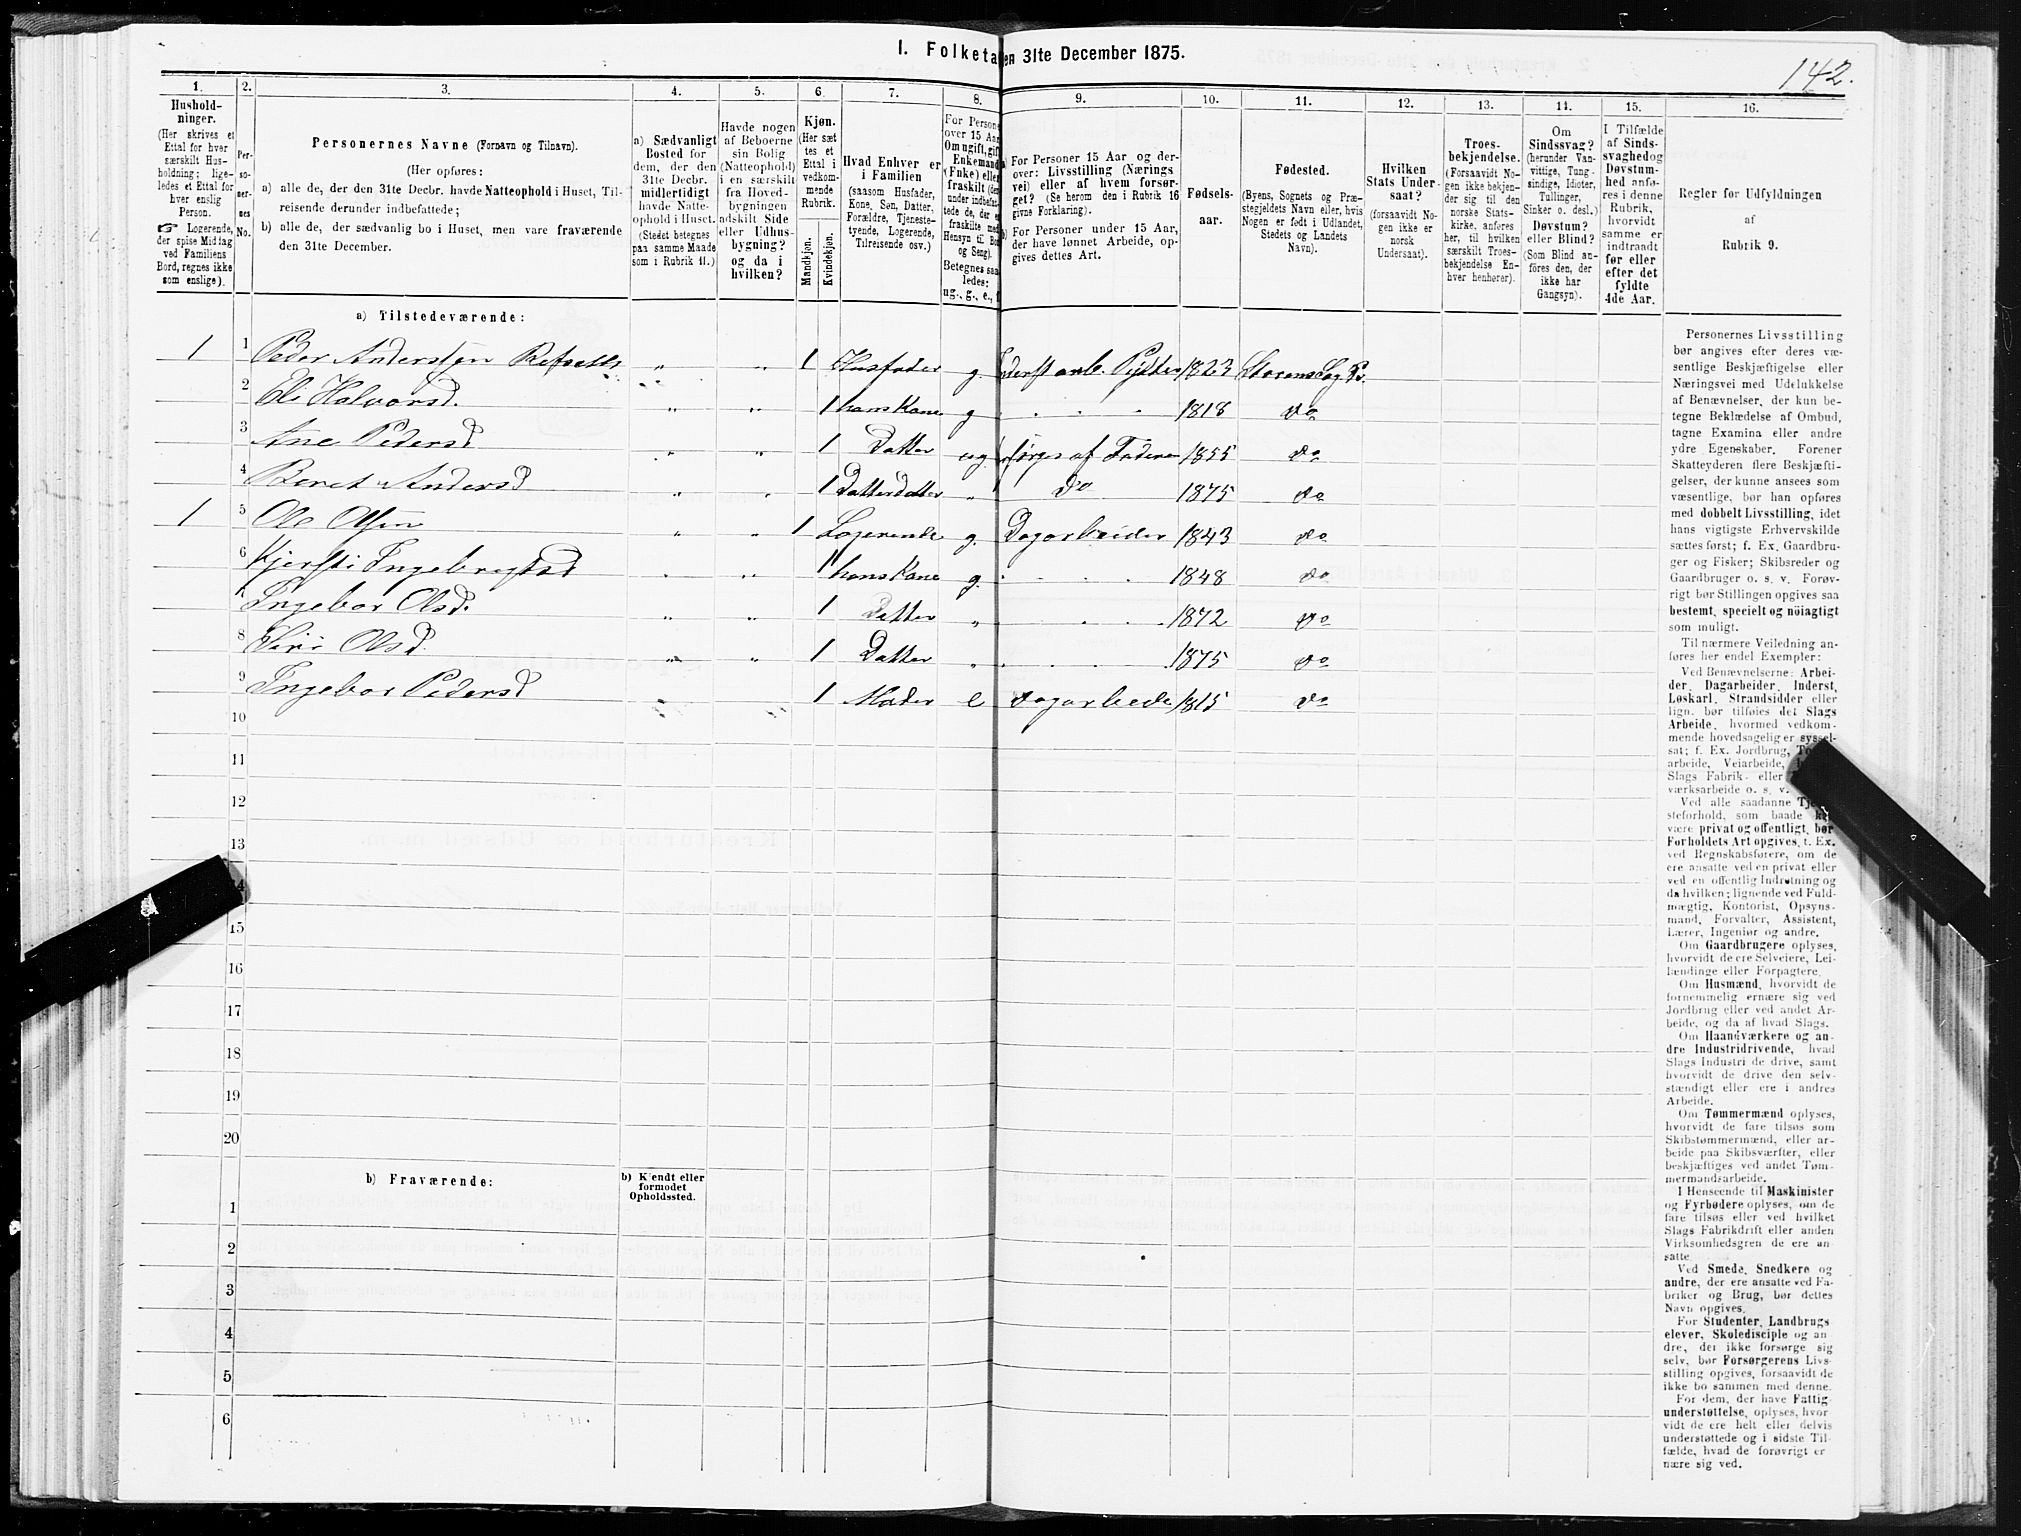 142.
I. Folketa
en 31te December 1875.
1. 2. 3. 4. 5. 6. 7. 8. 9. 10. 11. 12. 13. 14. 15. 16.
Hushold-
ninger.
(Her skrives et
Ettal for hver
særskilt Hus-
holdning; lige-
ledes et Ettal for
hver enslig
Person.
☞ Logerende,
der spise Middag
ved Familiens
Bord, regnes ikke
som enslige).
Per-
so-
ner-
nes
No.
Personernes Navne (Fornavn og Tilnavn).
(Her opføres:
a) alle de, der den 31te Decbr. havde Natteophold i Huset, Til-
reisende derunder indbefattede;
b) alle de, der sædvanlig bo i Huset, men vare fraværende
den 31te December.
a) Sædvanligt
Bosted for
dem, der den
31te Decbr.
midlertidigt
havde Natte-
ophold i Huset.
(Stedet betegnes
paa samme Maade
som i Rubrik 11.)
Havde nogen
af Beboerne
sin Bolig
(Natteophold)
i en særskilt
fra Hoved-
bygningen
adskilt Side
eller Udhus-
bygning?
og da i
hvilken?
Kjøn.
(Her sæt
tes et
Ettal i
vedkom-
mende
Rubrik.
Mandkjøn.
Kvindekjøn.
Hvad Enhver er
i Familien
(saasom Husfader,
Kone, Søn, Datter,
Forældre, Tjeneste-
tyende, Logerende,
Tilreisende osv.)
For Persone
over 15 Aar
Om ugift, gif
Enkemand
(Enke) eller
fraskilt (den
under indbefat-
tede de, der e
fraskilte med
Hensyn til Bo
og Seng).
Betegnes saa
ledes:
ug., g., e., f.
For Personer 15 Aar og der-
over: Livsstilling (Nærings
vei) eller af hvem forsør-
get? (Se herom den i Rubrik 16
givne Forklaring).
b) For Personer under 15 Aar,
der have lønnet Arbeide, op-
gives dettes Art.
Fødsels-
aar.
Fødested.
(Byens, Sognets og Præ-
stegjeldets Navn eller, hvis
Nogen er født i Udlandet,
Stedets og Landets
Navn).
Hvilken
Stats Under-
saat?
(forsaavidt No-
gen ikke er
norsk
Undersaat).
Troes-
bekjendelse.
(Forsaavidt No-
gen ikke bekjen-
der sig til den
norske Stats-
kirke, anføres
her, til hvilken
særskilt Troes-
bekjendelse En-
hver henhører).
Om
Sindssvag?
(herunder Van-
vittige, Tung-
sindige, Idioter,
Tullinger,
Sinker o. desl.)
Døvstum?
eller Blind?
(Som Blind an-
føres den, der
ikke har
Gangsyn).
I Tilfælde
af Sinds-
svaghed og
Døvstum-
hed anfø-
res i denne
Rubrik,
hvorvidt
samme er
indtraadt
før eller
efter det
fyldte
4de Aar.
Regler for Udfyldningen
af
Rubrik 9.
a) Tilstedeværende:
1 1 Peder Anderssen „ „ 1 Husfader g. 1823
2 Eli Halvorsd. „ „ 1 hans Kone g 1818 do
3 Ane Pedersd „ „ 1 Datter ug. forsørges af Faderen 1855 do
4 Beret Andersd „ „ 1 Datterdatter „ do 1875 do
1 5 Ole Olsen „ „ 1 Logerende g. Dagarbeider 1843 do
6 Kjersti Ingebrigtsd „ „ 1 hans Kone g. 1848 do
Ingebor Olsd. „ „ 1 Datter „ 1872 do
8 Siri Olsd. „ „ 1 Datter „ 1875 do
9 Ingebor Pedersd „ „ 1 Moder e dagarbeide 1815 do
10
11
12
13
14
15
16
17
18
19
20
b) Fraværende:
b) Kjendt eller
formodet
Opholdssted.
1
2
3
4
5
6
Personernes Livsstilling
bør angives efter deres væ-
sentlige Beskjæftigelse eller
Næringsvei med Udelukkelse
af Benævnelser, der kun be-
tegne Beklædelse af Ombud,
tagne Examina eller andre
ydre Egenskaber. Forener
Skatteyderen flere Beskjæfti-
gelser, der kunne ansees som
væsentlige, bør han opføres
med dobbelt Livsstilling, idet
hans vigtigste Erhvervskilde
sættes først; f. Ex. Gaardbru-
ger og Fisker; Skibsreder og
Gaardbruger o. s. v. Forøv-
rigt bør Stillingen opgives saa
bestemt, specielt og nöiagtigt
som muligt.
Til nærmere Veiledning an-
føres her endel Exempler:
Ved Benævnelserne: Arbei-
der, Dagarbeider, Inderst,
Løskarl, Strandsidder eller
lign. bør tilføies det Slags
Arbeide, hvormed vedkom-
mende hovedsagelig er syssel-
sat; f. Ex. Jordbrug,
arbeide, Veiarbeide,
Slags Fabrik- eller
værksarbeide o. s. v.
Ved alle saadanne
steforhold, som baade
være privat og offentligt, bør
Forholdets Art opgives, t. Ex.
ved Regnskabsførere, om de
ere ansatte ved en privat eller
ved en offentlig Indretning og
da hvilken; lignende ved Fuld-
mægtig, Kontorist, Opsyns-
mand, Forvalter, Assistent,
Lærer, Ingeniør og andre.
Om Gaardbrugere oplyses,
hvorvidt de ere Selveiere, Lei-
lændinge eller Forpagtere.
Om Husmænd, hvorvidt de
fornemmelig ernære sig ved
Jordbrug eller ved andet Ar-
beide, og da af hvad Slags.
Om Haandværkere og an-
dre Industridrivende, hvad
Slags Industri de drive, samt
hvorvidt de drive den selv-
stændigt eller ere i andres
Arbeide.
Om Tømmermænd oplyses,
hvorvidt de fare tilsøs som
Skibstømmermænd, eller ar-
beide paa Skibsværfter, eller
beskjæftiges ved andet Tøm-
mermandsarbeide.
I Henseende til Maskinister
og Fyrbødere oplyses, om de
fare tilsøs eller ved hvilket
Slags Fabrikdrift eller anden
Virksomhedsgren de ere an-
satte.
Ved Smede, Snedkere og
andre, der ere ansatte ved Fa-
briker og Brug, bør dettes
Navn opgives.
For Studenter, Landbrugs
elever, Skoledisciple og an
dre, der ikke forsørge sig
selv, bør Forsørgerens Livs-
stilling opgives, forsaavidt de
ikke bo sammen med denne.
For dem, der have Fattig-
understøttelse, oplyses, hvor
vidt de ere helt eller delvis
understøttede og i sidste Til-
fælde, hvad de forøvrigt er
nære sig ved.